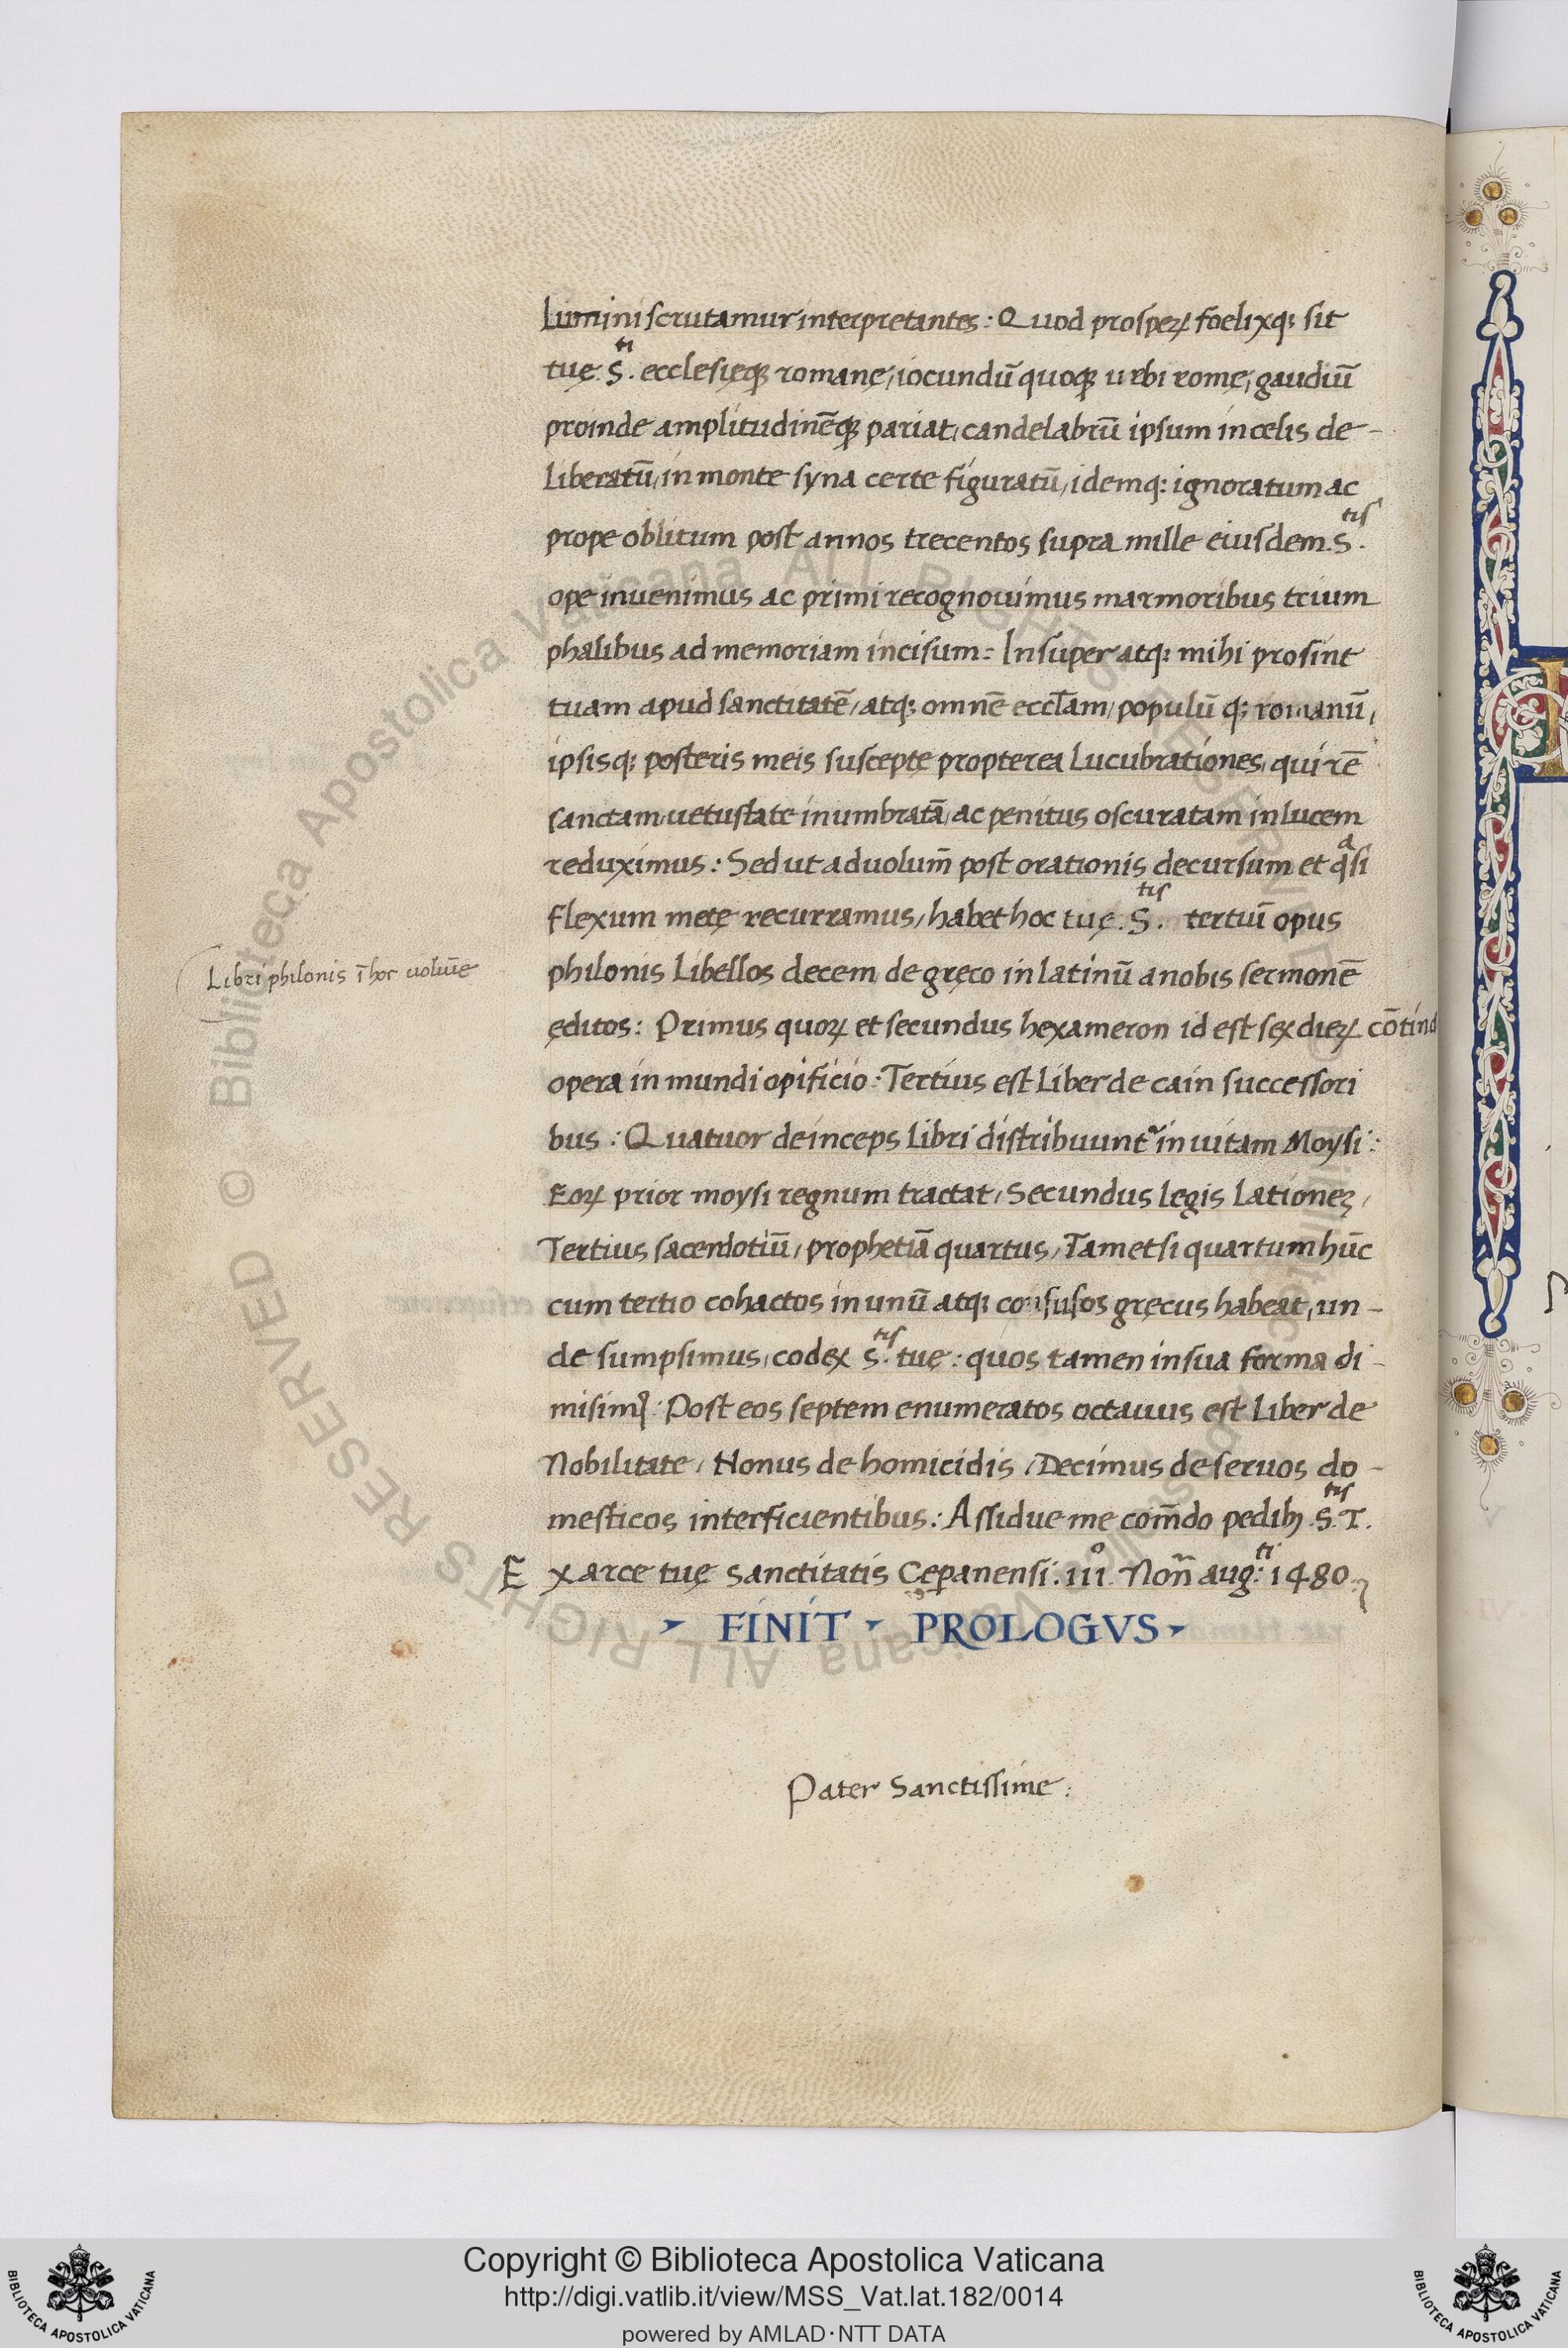 Liminiscrutamur interpretantes: Quod prosperꝝ foelixq; sit
tuę. S.ti ecclesięqꝫ romanę, iocundū quoqꝫ urbi romę, gaudiū
proinde amplitudinēqꝫ pariat, candelabrū ipsum in celis de-
liberatū, in monte syna certe figuratū, idemq; ignoratum ac
prope oblitum post annos trecentos supra mille eiusdem. S.tis
ope inuenimus ac primi recognouimus marmoribus trium
phalibus ad memoriam incisum: Insuper atq; mihi prosint
tuam apud sanctitatē, atq; omnē eccl̄am, populū q; romanū,
ipsisq; posteris meis suscepte propterea Lucubrationes, qui rē
sanctam, uetustate inumbratā, ac penitus oscuratam in lucem
reduximus: Sed ut ad uolum̄ post orationis decursum et qᵃsi
flexum metę recurramus, habet hoc tuę. S.tis tertuī opus
philonis Libellos decem de gręco in latinū a nobis sermonē
Libri philonis ī hoc uolūe
ęditos: Primus quoꝝ et secundus hexameron id est sex dieꝝ cōtind
opera in mundi opificio: Tertius est Liber de cain successori
bus: Quatuor deinceps libri distribuunt᷑ in uitam Moysi:
Eoꝝ prior moysi regnum tractat, Secundus legis Lationeȝ,
Tertius sacerdotiū, prophetiā quartus, Tametsi quartum hūc
cum tertio cohactos in unū atq; confusos gręcus habeat, un-
de sumpsimus, codex S.tis tuę: quos tamen in sua forma di-
misimꝰ: Post eos septem enumeratos octauus est Liber de
Nobilitate, Nonus de homicidis, Decimus de seruos do-
mesticos interficientibus: Assidue me com̄do pedibꝫ .S.tis T.
Ex arce tuę sanctitatis Cępanensi. iiiº. Non̄ aug:ti 1480.
FINIT PROLOGVS
Pater Sanctissime:
© Biblioteca Apostolica Vaticana ALL RIGHTS RESERVED © Biblioteca Apostolica Vaticana ALL RIGHTS RESERVED
Copyright © Biblioteca Apostolica Vaticana
http://digi.vatlib.it/view/MSS_Vat.lat.182/0014
powered by AMLAD·NTT DATA
BIBLIOTECA APOSTOLICA VATICANA
BIBLIOTECA APOSTOLICA VATICANA